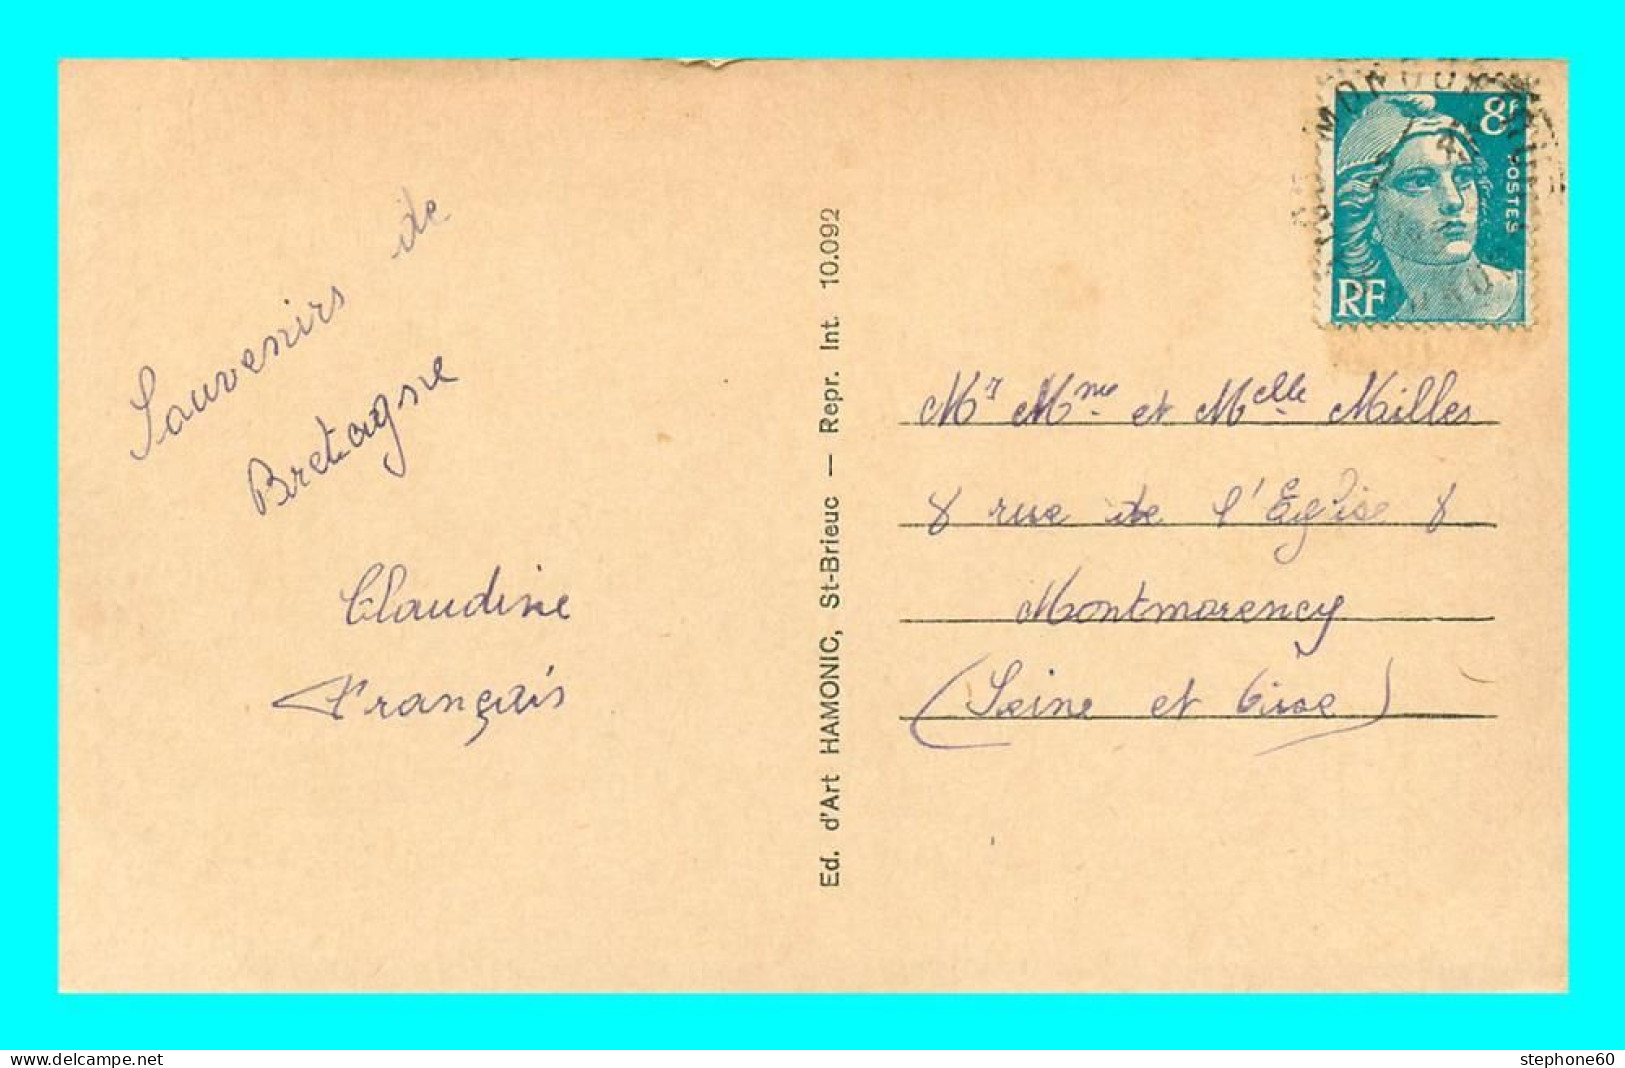 Souvenirs de
Bretagne
Claudine
Français
Ed. d'Art HAMONIC, St-Brieuc — Repr. Int. 10.092
8F
POSTES
RF
Mr Mme et Melle Milles
8 rue de l'Eglise 8
Montmorency
(Seine et Oise)
www.delcampe.net
stephone60